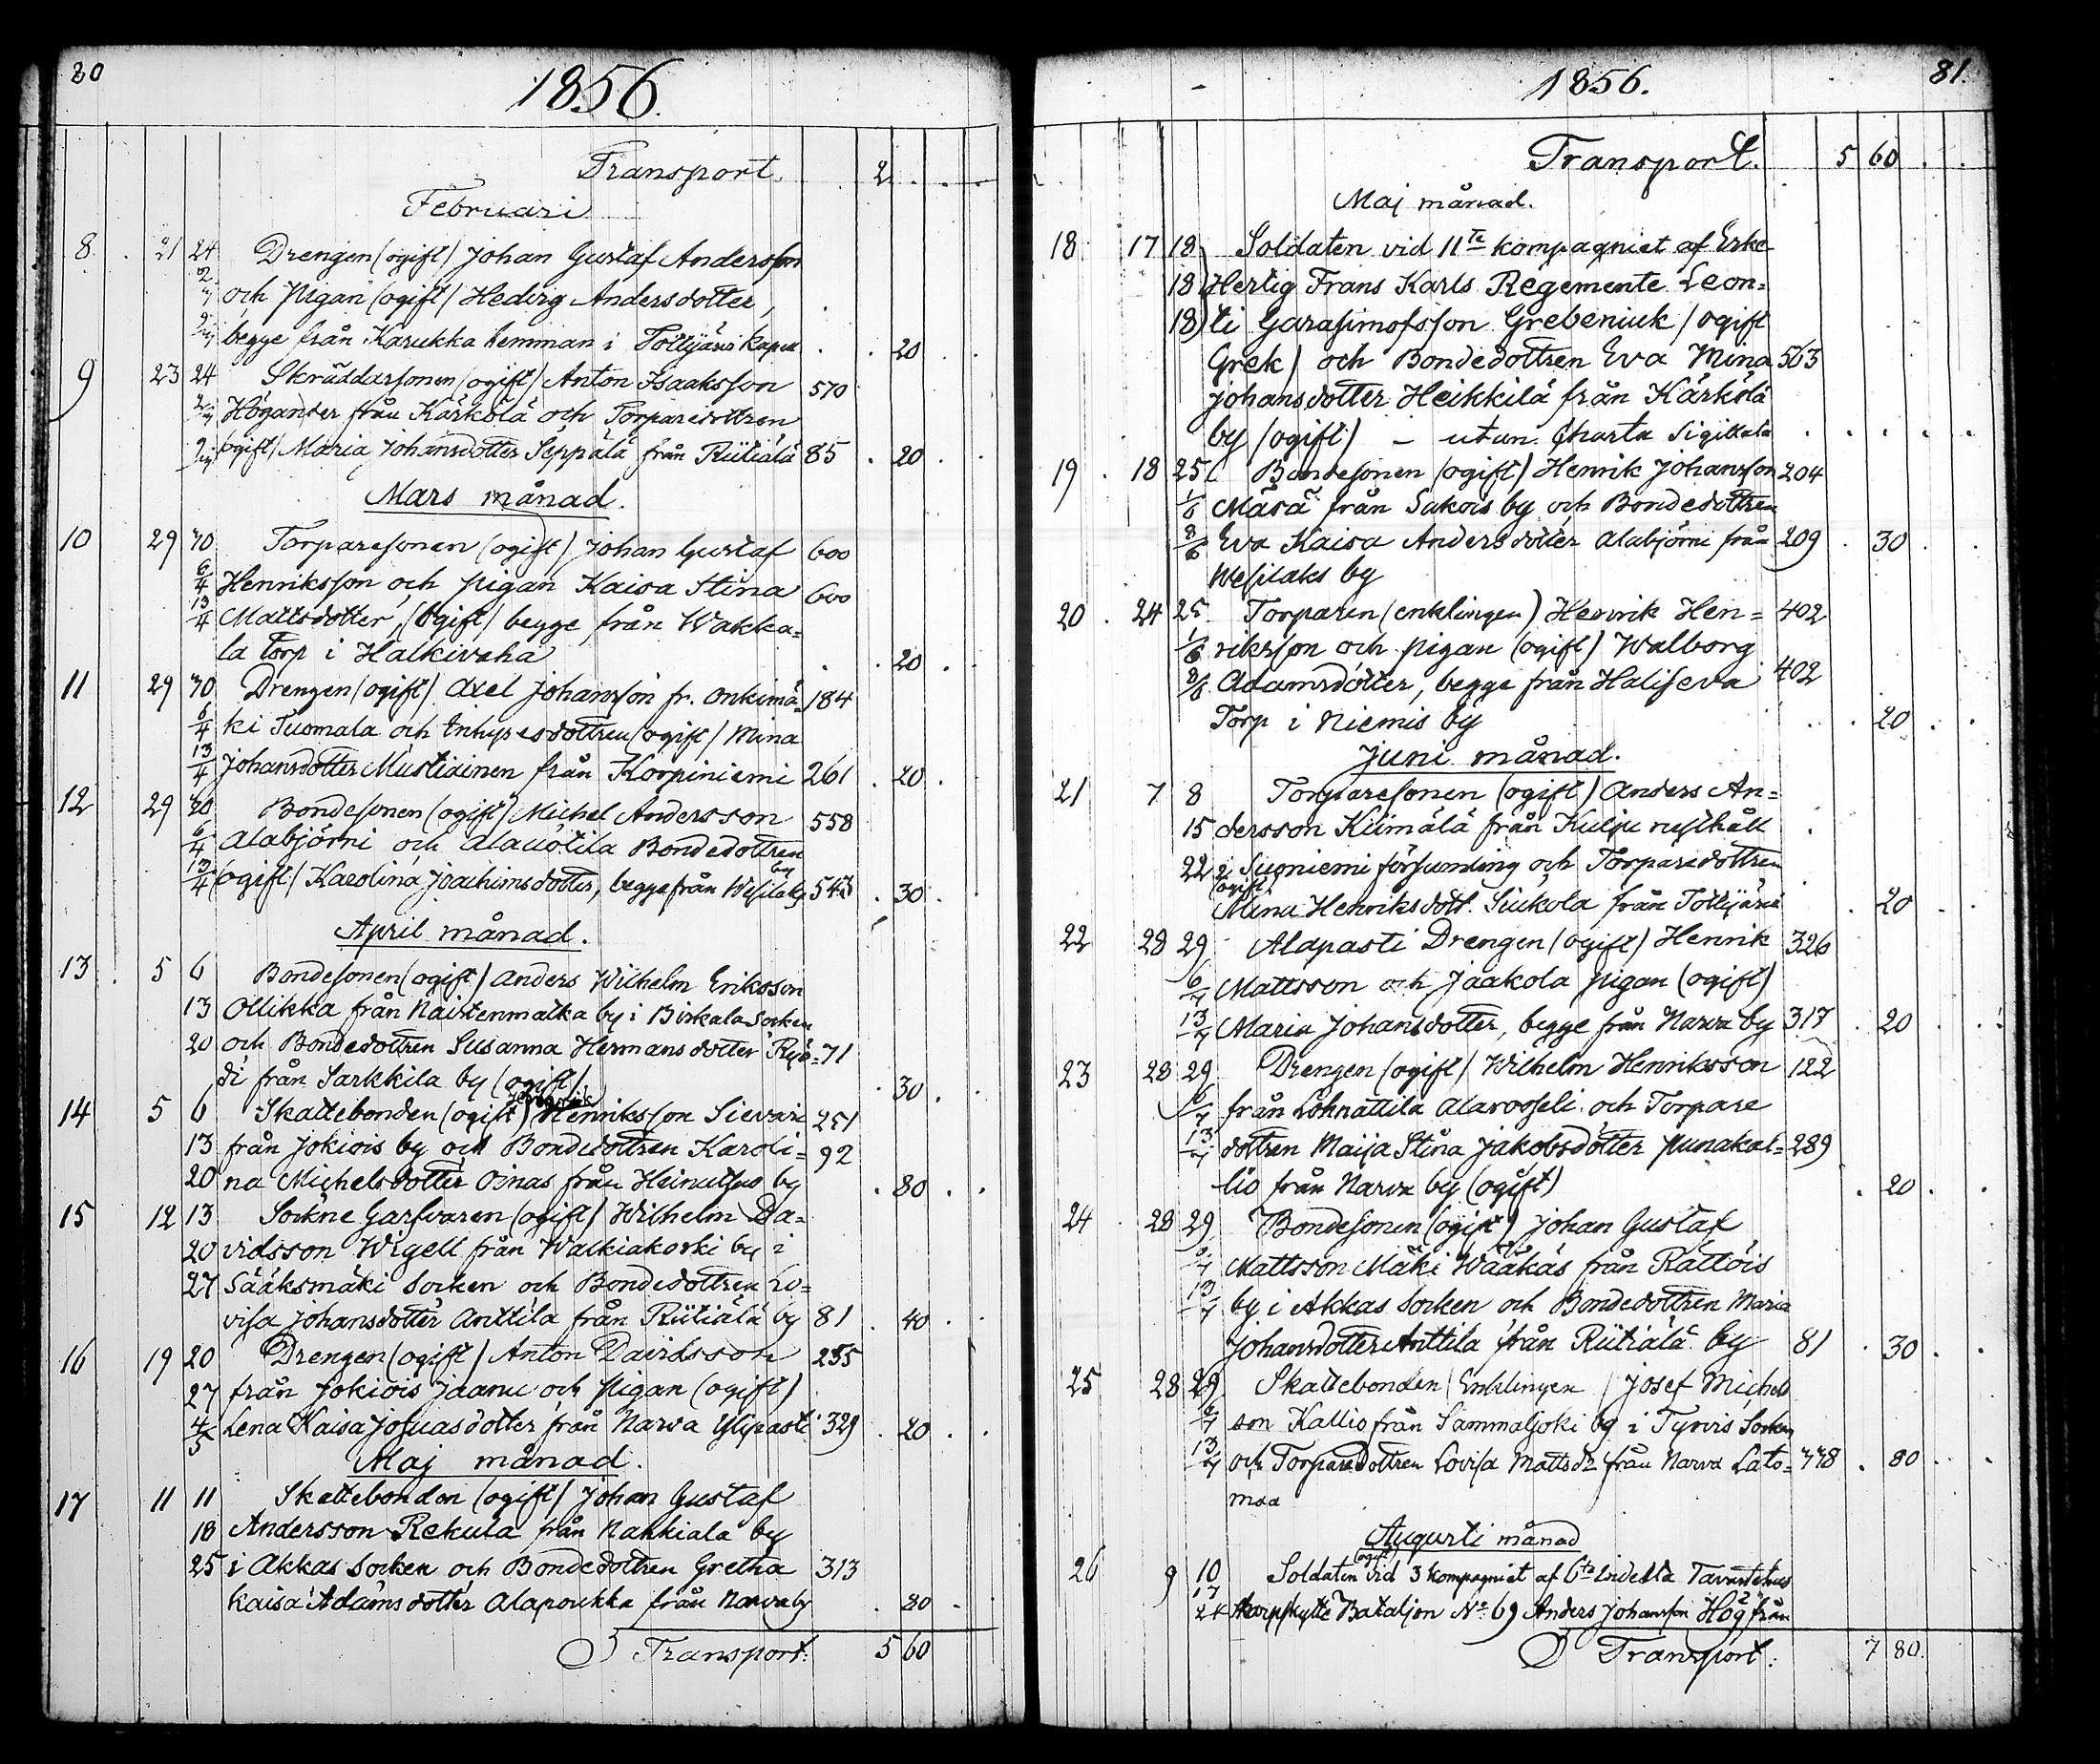 80
1856.
Transport. 2 . .
Februari
8 . 21 24 Drengen (ogift) Johan Gustaf Andersson
och Pigan (ogift) Hedvig Andersdotter,
begge från Karukka hemman i Tottijärvi kapell . . 20 . .
9 23 24 Skräddarsonen (ogift) Anton Isaaksson 570
Högander från Kärkölä och Torparedottren
(ogift) Maria Johansdotter Seppälä från Riitiälä 85 . 20 . .
Mars månad.
10 29 30 Torparesonen (ogift) Johan Gustaf 600
6/4 Henriksson och pigan Kaisa Stina 600
13/4 Mattsdotter, (ogift) begge från Wakka=
la Torp i Halkivaha . . 20 .
11 29 30 Drengen (ogift) Axel Johansson fr. Onkimä= 184
6/4 ki Tuomala och Inhysesdottren (ogift) Mina
13/4 Johansdotter Mustiainen från Korpiniemi 261 . 20 .
12 29 30 Bondesonen (ogift) Michel Andersson 558
6/4 Alabjörni och Alauotila Bondedottren
13/4 (ogift) Karolina Joachimsdotter, begge från Wesilaks by 543 . 30 .
April månad.
13 . 5 6 Bondesonen (ogift) Anders Wilhelm Eriksson
13 Ollikka från Naistenmatka by i Birkala Socken
20 och Bondedottren Susanna Hermansdotter Ryö= 71
di från Sarkkila by (ogift) . 30 . .
14 5 6 Skattebonden (ogift) Henriksson Sievari 251
13 från Jokiois by och Bondedottren Karoli= 92
20 na Michelsdotter Oinas från Heinutsuo by . 80 . .
15 12 13 Sockne Garfvaren (ogift) Wilhelm Da=
20 vidsson Wigell från Walkiakoski by i
27 Sääksmäki Socken och Bondedottren Lo=
visa Johansdotter Anttila från Riitiälä by 81 . 40 . .
16 19 20 Drengen (ogift) Anton Davidsson 255
27 från Jokiois Jaanu och Pigan (ogift)
4/5 Lena Kaisa Josuasdotter från Narva Ylipasti 329 . 20 . .
Maj månad.
17 11 11 Skattebonden (ogift) Johan Gustaf
18 Andersson Rekula från Nahkiala by
25 i Akkas Socken och Bondedottren Gretha 313
Kaisa Adamsdotter Alapoukka från Narva by . 80 .
Transport: 5 60
1856. 81.
Transport. 5 60 . .
Maj månad.
18 17 18 Soldaten vid 11te kompagniet af Erke
18 Hertig Frans Karls Regemente Leon=
18 ti Garasimofsson Grebeniuk (ogift
Grek) och Bondedottren Eva Mina 563
Johansdotter Heikkilä från Kärkölä
by (ogift) – utan Charta Sigillata . . . . .
19 . 18 25 Bondesonen (ogift) Henrik Johansson 204
1/6 Mäsä från Sakois by och Bondedottren
8/6 Eva Kaisa Andersdotter Alabjörni från 209 . 30 . .
Wesilaks by
20 . 24 25 Torparen (enklingen) Henrik Hen= 402
1/6 riksson och pigan (ogift) Walborg
8/6 Adamsdotter, begge från Haliseva 402
Torp i Niemis by . . 20 . .
Juni månad.
21 7 8 Torparesonen (ogift) Anders An=
15 dersson Kiimälä från Kulju rusthåll .
22 i Suoniemi församling och Torparedottren
(ogift)
Mina Henriksdott. Siukola från Tottijärvi . 20 . .
22 28 29 Alapasti Drengen (ogift) Henrik 326
6/7 Mattsson och Jaakola pigan (ogift)
13/7 Maria Johansdotter, begge från Narva by 317 . 20 . .
23 28 29 Drengen (ogift) Wilhelm Henriksson 122
6/7 från Lohnattila Alarooseli och Torpare
13/7 dottren Maija Stina Jakobsdotter Punakal= 289
lio från Narva by (ogift) . 20 . .
24 . 28 29 Bondesonen (ogift) Johan Gustaf
6/7 Mattsson Mäki Wääkäs från Rättöis
13/7 by i Akkas Socken och Bondedottren Maria
Johansdotter Anttila från Riitiälä by 81 . 30 . .
25 28 29 Skattebonden (Enklingen) Josef Michels
6/7 son Kallio från Sammaljoki by i Tyrvis Socken
13/7 och Torparedottren Lovisa Mattsdr från Narva Lato= 778 . 80 . .
maa
Augusti månad
(ogift)
26 9 10 Soldaten vid 3 kompagniet af 6te indelta Tavastehus
17
24 Skarpskytte Bataljon No 69 Anders Johansson Hög från
Transport: 7 80.